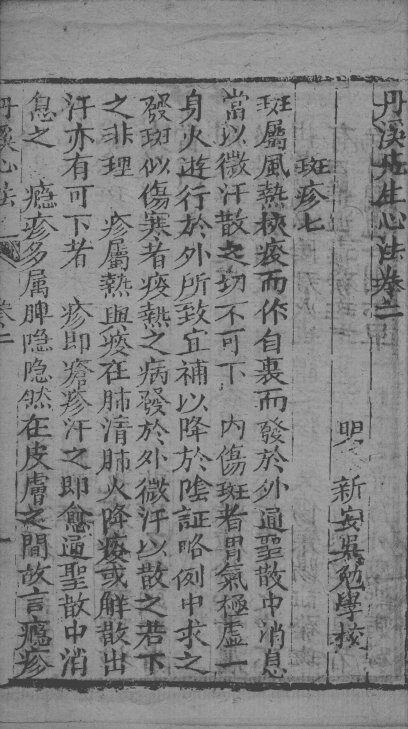 丹溪先生心法卷二
明　新安吳勉學校
斑疹七
斑屬風熱挾痰而作自裏而發於外通聖散中消息
當以微汗散之切不可下　內傷斑者胃氣極虛一
身火遊行於外所致宜補以降於陰証略例中求之
發斑似傷寒者痰熱之病發於外微汗以散之若下
之非理　疹屬熱與痰在肺清肺火降痰或解散出
汗亦有可下者　疹即瘡疹汗之即愈通聖散中消
息之　瘾疹多属脾隐隐然在皮膚之間故言癮疹
丹溪心法　卷二　一